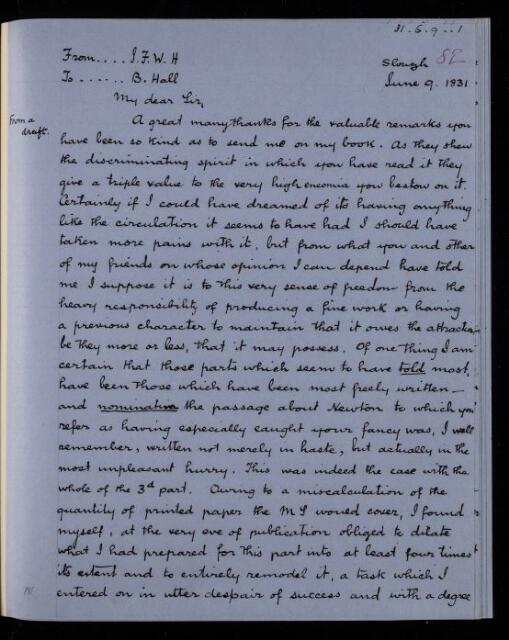 31.6.9..1
From.... J.F.W.H
Slough
To ...... B. Hall
June 9. 1831
My dear Sir,
From a
draft.
A great many thanks for the valuable remarks you
have been so kind as to send me on my book. As they shew
the discriminating spirit in which you have read it they
give a triple value to the very high encomia you bestow on it.
Certainly if I could have dreamed of its having anything
like the circulation it seems to have had I should have
taken more pains with it, but from what you and other
of my friends on whose opinion I can depend have told
me I suppose it is to this very sense of freedom from the
heavy responsibility of producing a fine work or having
a previous character to maintain that it owes the attraction,
be they more or less, that it may possess. Of one thing I am
certain that those parts which seem to have told most,
have been those which have been most freely written —
and nominative the passage about Newton to which you
refer as having especially caught your fancy was, I well
remember, written not merely in haste, but actually in the
most unpleasant hurry. This was indeed the case with the
whole of the 3d part. Owing to a miscalculation of the
quantity of printed paper the MS would cover, I found
myself, at the very eve of publication obliged to dilate
what I had prepared for this part into at least four times
its extent and to entirely remodel it, a task which I
entered on in utter despair of success and with a degree